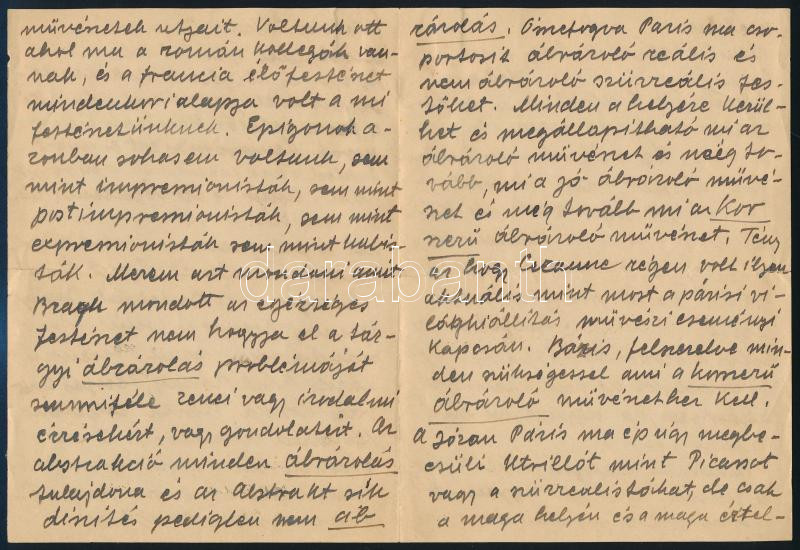 művészetek utjait. Voltunk ott
ahol ma a román kollegák van-
nak, és a francia élőfestészet
mindenkori alapja volt a mi
festészetünknek. Epigonok a-
zonban sohasem voltunk, sem
mint impresszionisták, sem mint
postimpresszionisták, sem mint
expressionisták sem mint kubis-
ták. Merem azt mondani amit
Bragh mondott az egészséges
festészet nem hagyja el a tár-
gyi ábrázolás problémáját
semmiféle zenei vagy irodalmi
érzésekért, vagy gondolatért. Az
abstrakció minden ábrázolás
tulajdona és az Abstrakt sík
díszítés pediglen nem áb
rázolás. Összefogva Páris ma cso-
portosit ábrázoló reális és
nem ábrázoló szürreális fes-
tőket. Minden a helyére kerül-
het és megállapítható mi az
ábrázoló művészet és még to-
vább, mi a jó ábrázoló művé-
szet és még tovább mi az Kor
szerű ábrázoló művészet. Tény
az hogy Cezanne régen volt ilyen
aktuális mint most a párisi vi-
lágkiállítás művészi eseményei
kapcsán. Bázis, felszerelve min-
den szükségessel ami a korszerű
ábrázoló művészethez kell.
A józan Páris ma épúgy megbe-
csüli Utrillót mint Picassot
vagy a szürrealistákat, de csak
a maga helyén és a maga értel-
darabanth